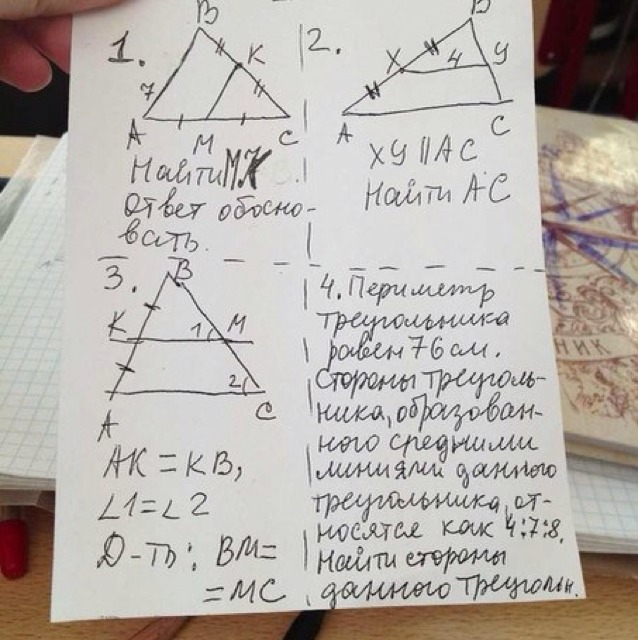 1.
B
K
7
A
M
C
Найти MK
Ответ обосно-
вать.
2.
B
X
4
У
A
C
XУ || AC
Найти AC
3.
B
K
1
M
2
A
C
AK = KB,
∠1 = ∠2
Д-ть: BM =
= MC
4. Периметр
треугольника
равен 76 см.
Стороны треуголь-
ника, образован-
ного средними
линиями данного
треугольника, от-
носятся как 4:7:8.
Найти стороны
данного треугольн.
НИК